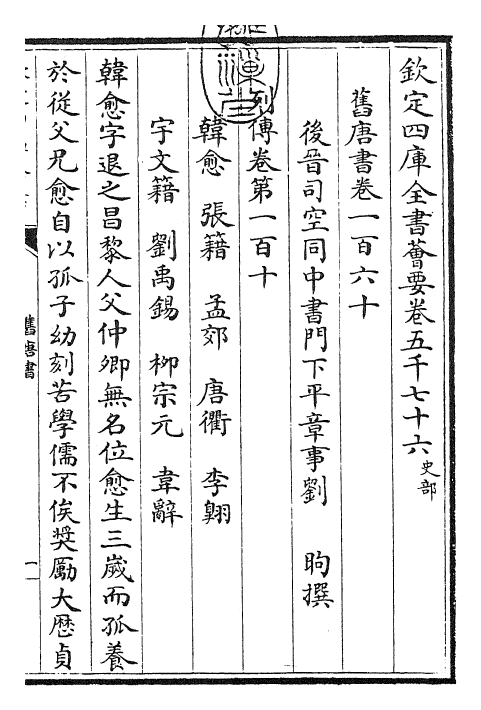 欽定四庫全書薈要卷五千七十六 史部
舊唐書卷一百六十
後晉司空同中書門下平章事劉 昫撰
列傳卷第一百十
韓愈 張籍 孟郊 唐衢 李翺
宇文籍 劉禹錫 柳宗元 韋辭
韓愈字退之昌黎人父仲卿無名位愈生三歲而孤養
於從父兄愈自以孤子幼刻苦學儒不俟奨勵大厯貞
舊唐書
一